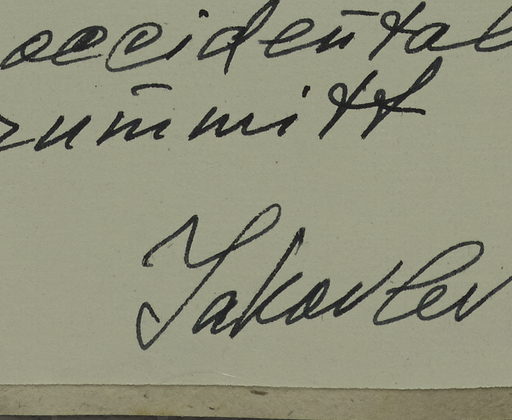 occidental
zummitt
Jakovlev